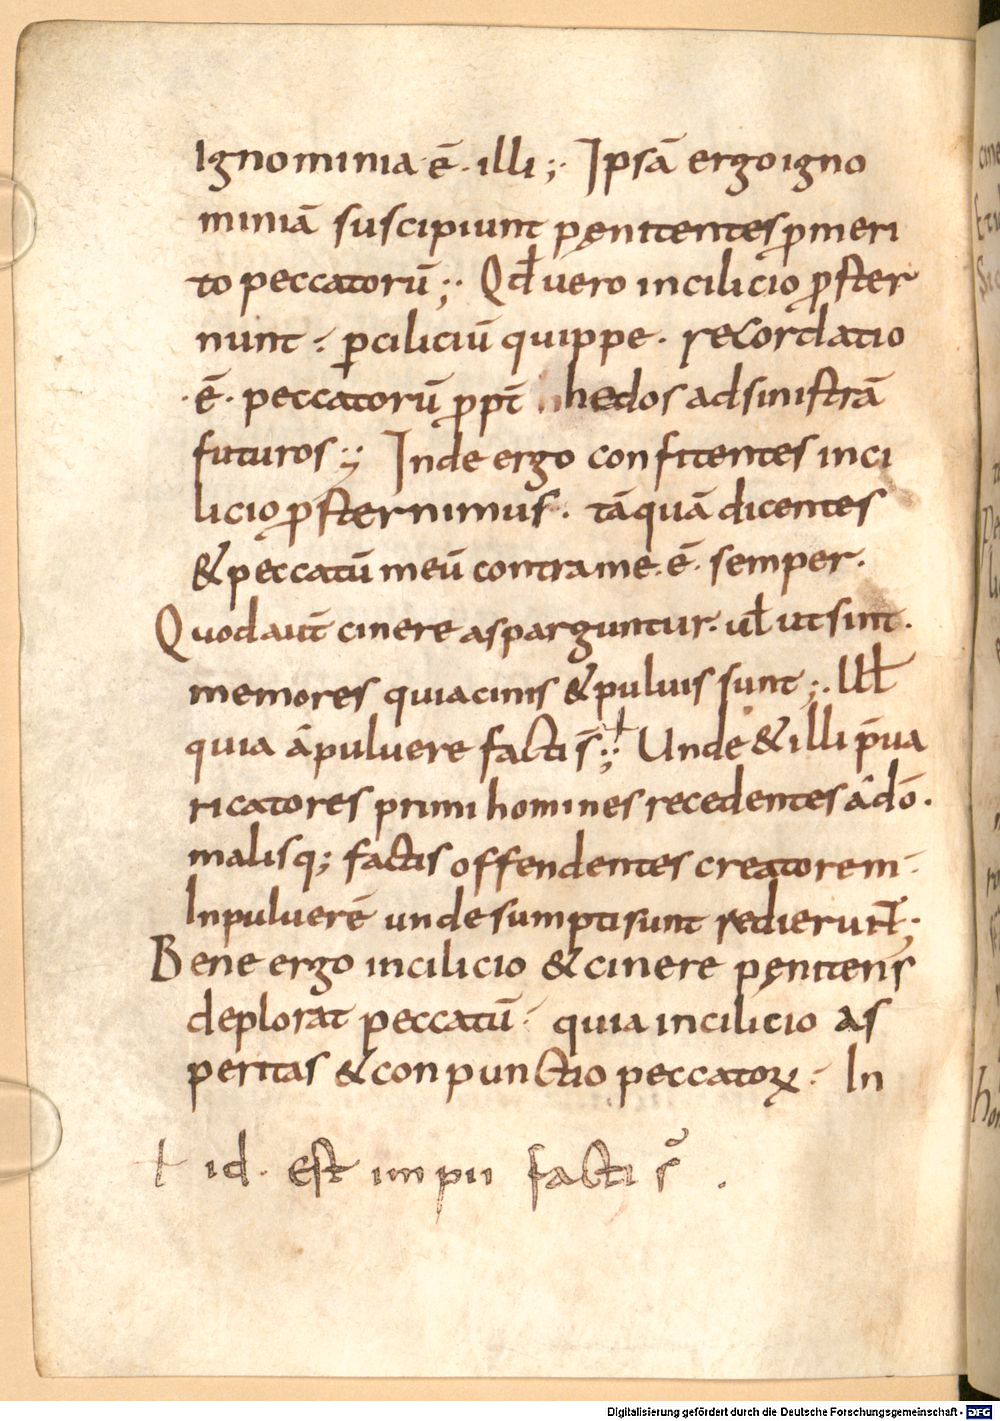 Ignominia·ē·illi;· Ipsā ergo igno
miniā suscipiunt pęnitentes ꝓ meri
to peccatorū;· Qđ uero in cilicio ꝓster
nunt· ꝑ ciliciū quippe· recordatio
·ē· peccatorū ꝓpt̄ hedos ad sinistrā
futuros;· Inde ergo confitentes in ci
licio ꝓsternimus· tāquā dicentes
& peccatū meū contra me·ē· semper·
Quod aut̄ cinere asparguntur· ul̄ ut sint·
memores quia cinis & puluis sunt;· Ul̄
quia á puluere facti s̄;· Unde & illi p̄ua
ricatores primi homines recedentes á dō·
malisq; factis offendentes creatorem·
In puluerē unde sumpti sunt redierunt;·
Bene ergo in cilicio & cinere pęnitens
deplorat peccatū· quia in cilicio as
peritas & conpunctio peccatoꝝ· In
ƚ id· est impii facti s̄·
Digitalisierung gefördert durch die Deutsche Forschungsgemeinschaft - DFG